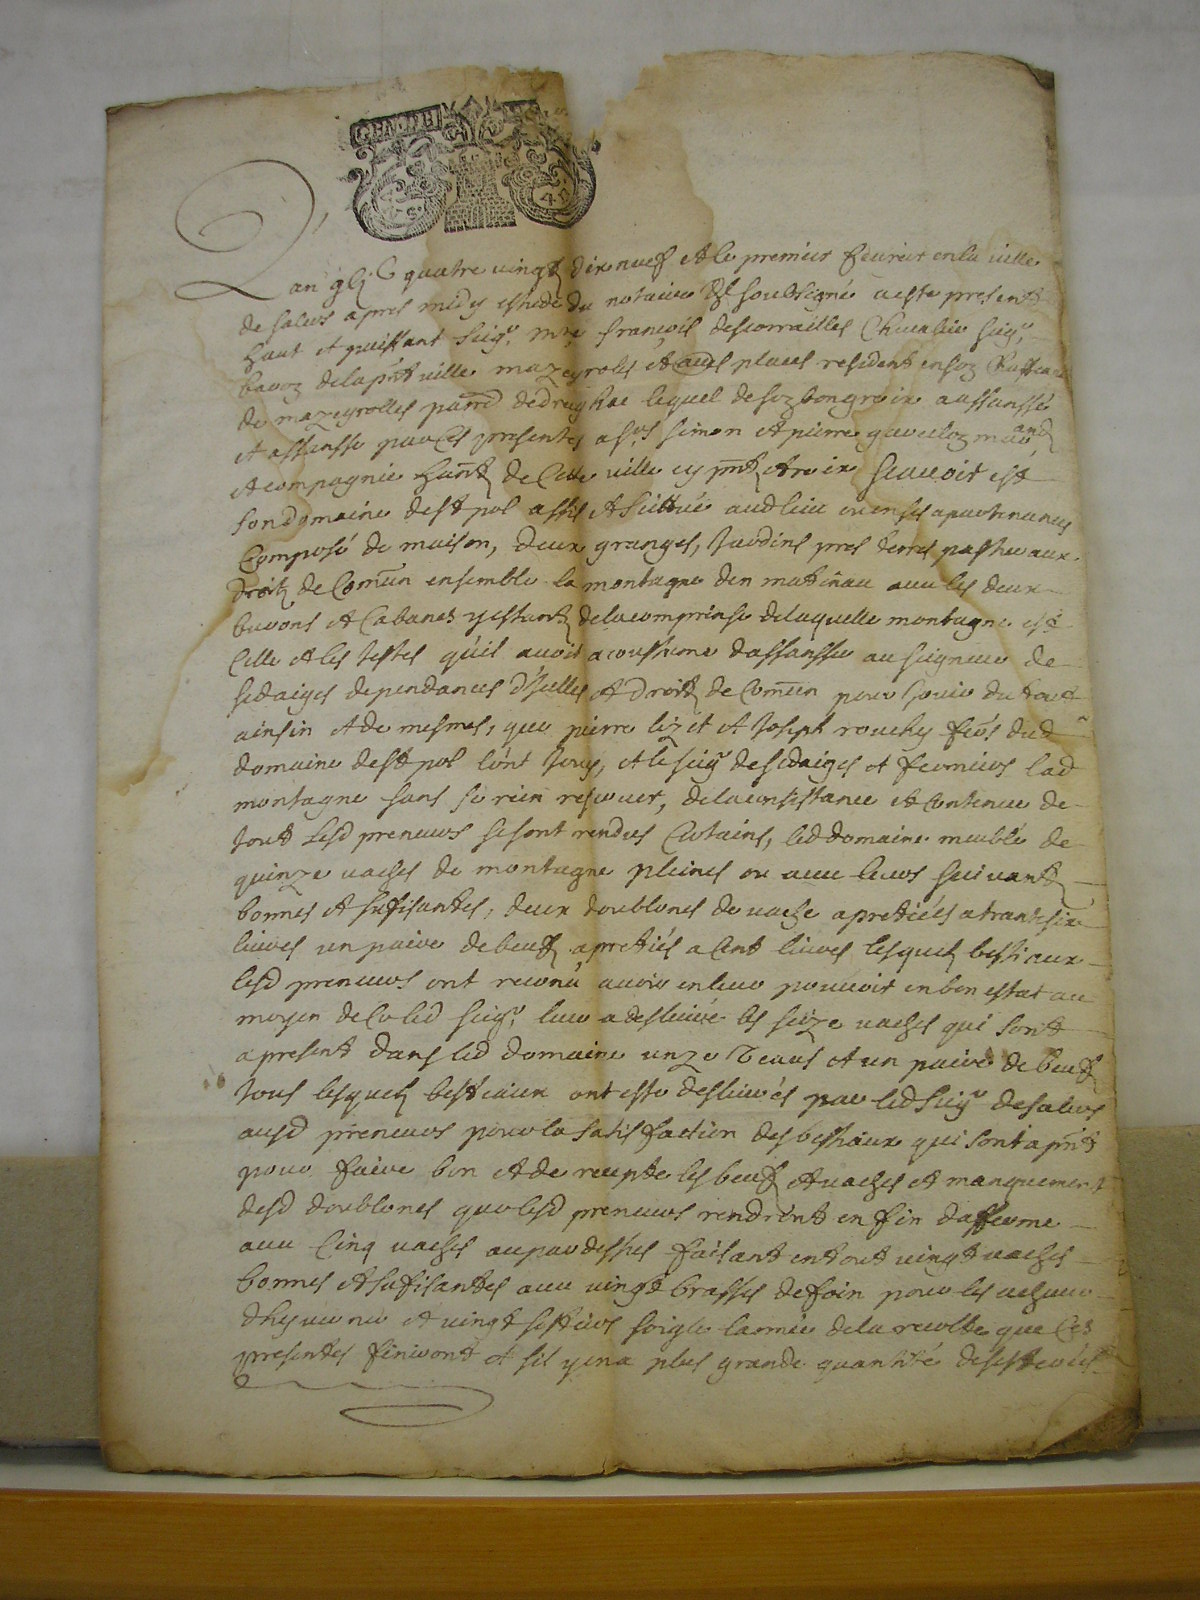 L'an gbj C quatre vingt dix neuf et le premier feuvrier en la ville
de salers apres midy estude du notaire Rl soubsigné a esté present
haut et puissant seigr. mre françois descorrailles Chevalier seigr
baron de la pnt ville mazeyroles et aues places resident en son Chasteau
de mazeyrolles parre de drughac lequel de son bon gre a assansse
et assansse par Ces presentes a srs simon et pierre mar
et compagnie hants de Cette ville cy pnts scavoir est
son domaine de st pol assis et scittué audlieu en ses apartenances
Composé de maison, deux granges, Jardins pres terres pasturaux
droits de Comun ensemble la montagne den avec les deux
burons et Cabanes y estants de la comprinse de laquelle montagne est
Celle et les testes quil avoit acoustume dassansser au seigneur de
sedaiges dependances dIcelles et droits de Comun pour Jouir du tout
ainsin et de mesmes, que pierre lizet et Joseph rouchy fers dud
domaine de st pol lont Jouy, et le seigr de sedaiges et fermiers lad
montagne sans se rien reserver, de la consistance et Contenue de
tout lesd preneurs se sont rendus Certains, led domaine meublé de
quinze vaches de montagne pleines ou avec leurs suivants
bonnes et sufisantes, deux doublones de vache apretiées a trante six
livres un paire de beufs apretiés a Cent livres lesquels bestiaux
lesd preneurs ont reconu avoir en leur pouvoir en bon estat au
moyen de Ce led seigr. leur a deslivré les seize vaches qui sont
a present dans led domaine unze veaux et un paire de beufs
tous lesquels bestiaux ont esté deslivrés par led seigr de salers
ausd preneurs pour la satisfaction des bestiaux qui sont a pnt
pour faire bon et de recepte les beufs et vaches et manquement
desd doublones que lesd preneurs rendront en fin dafferme
avec Cinq vaches au par dessus faisant en tout vingt vaches
bonnes et sufisantes avec vingt brasses de foin pour les
et vingt sestiers soigle lannée de la recolte que Ces
presentes finiront et sil y en a plus grande quantité de